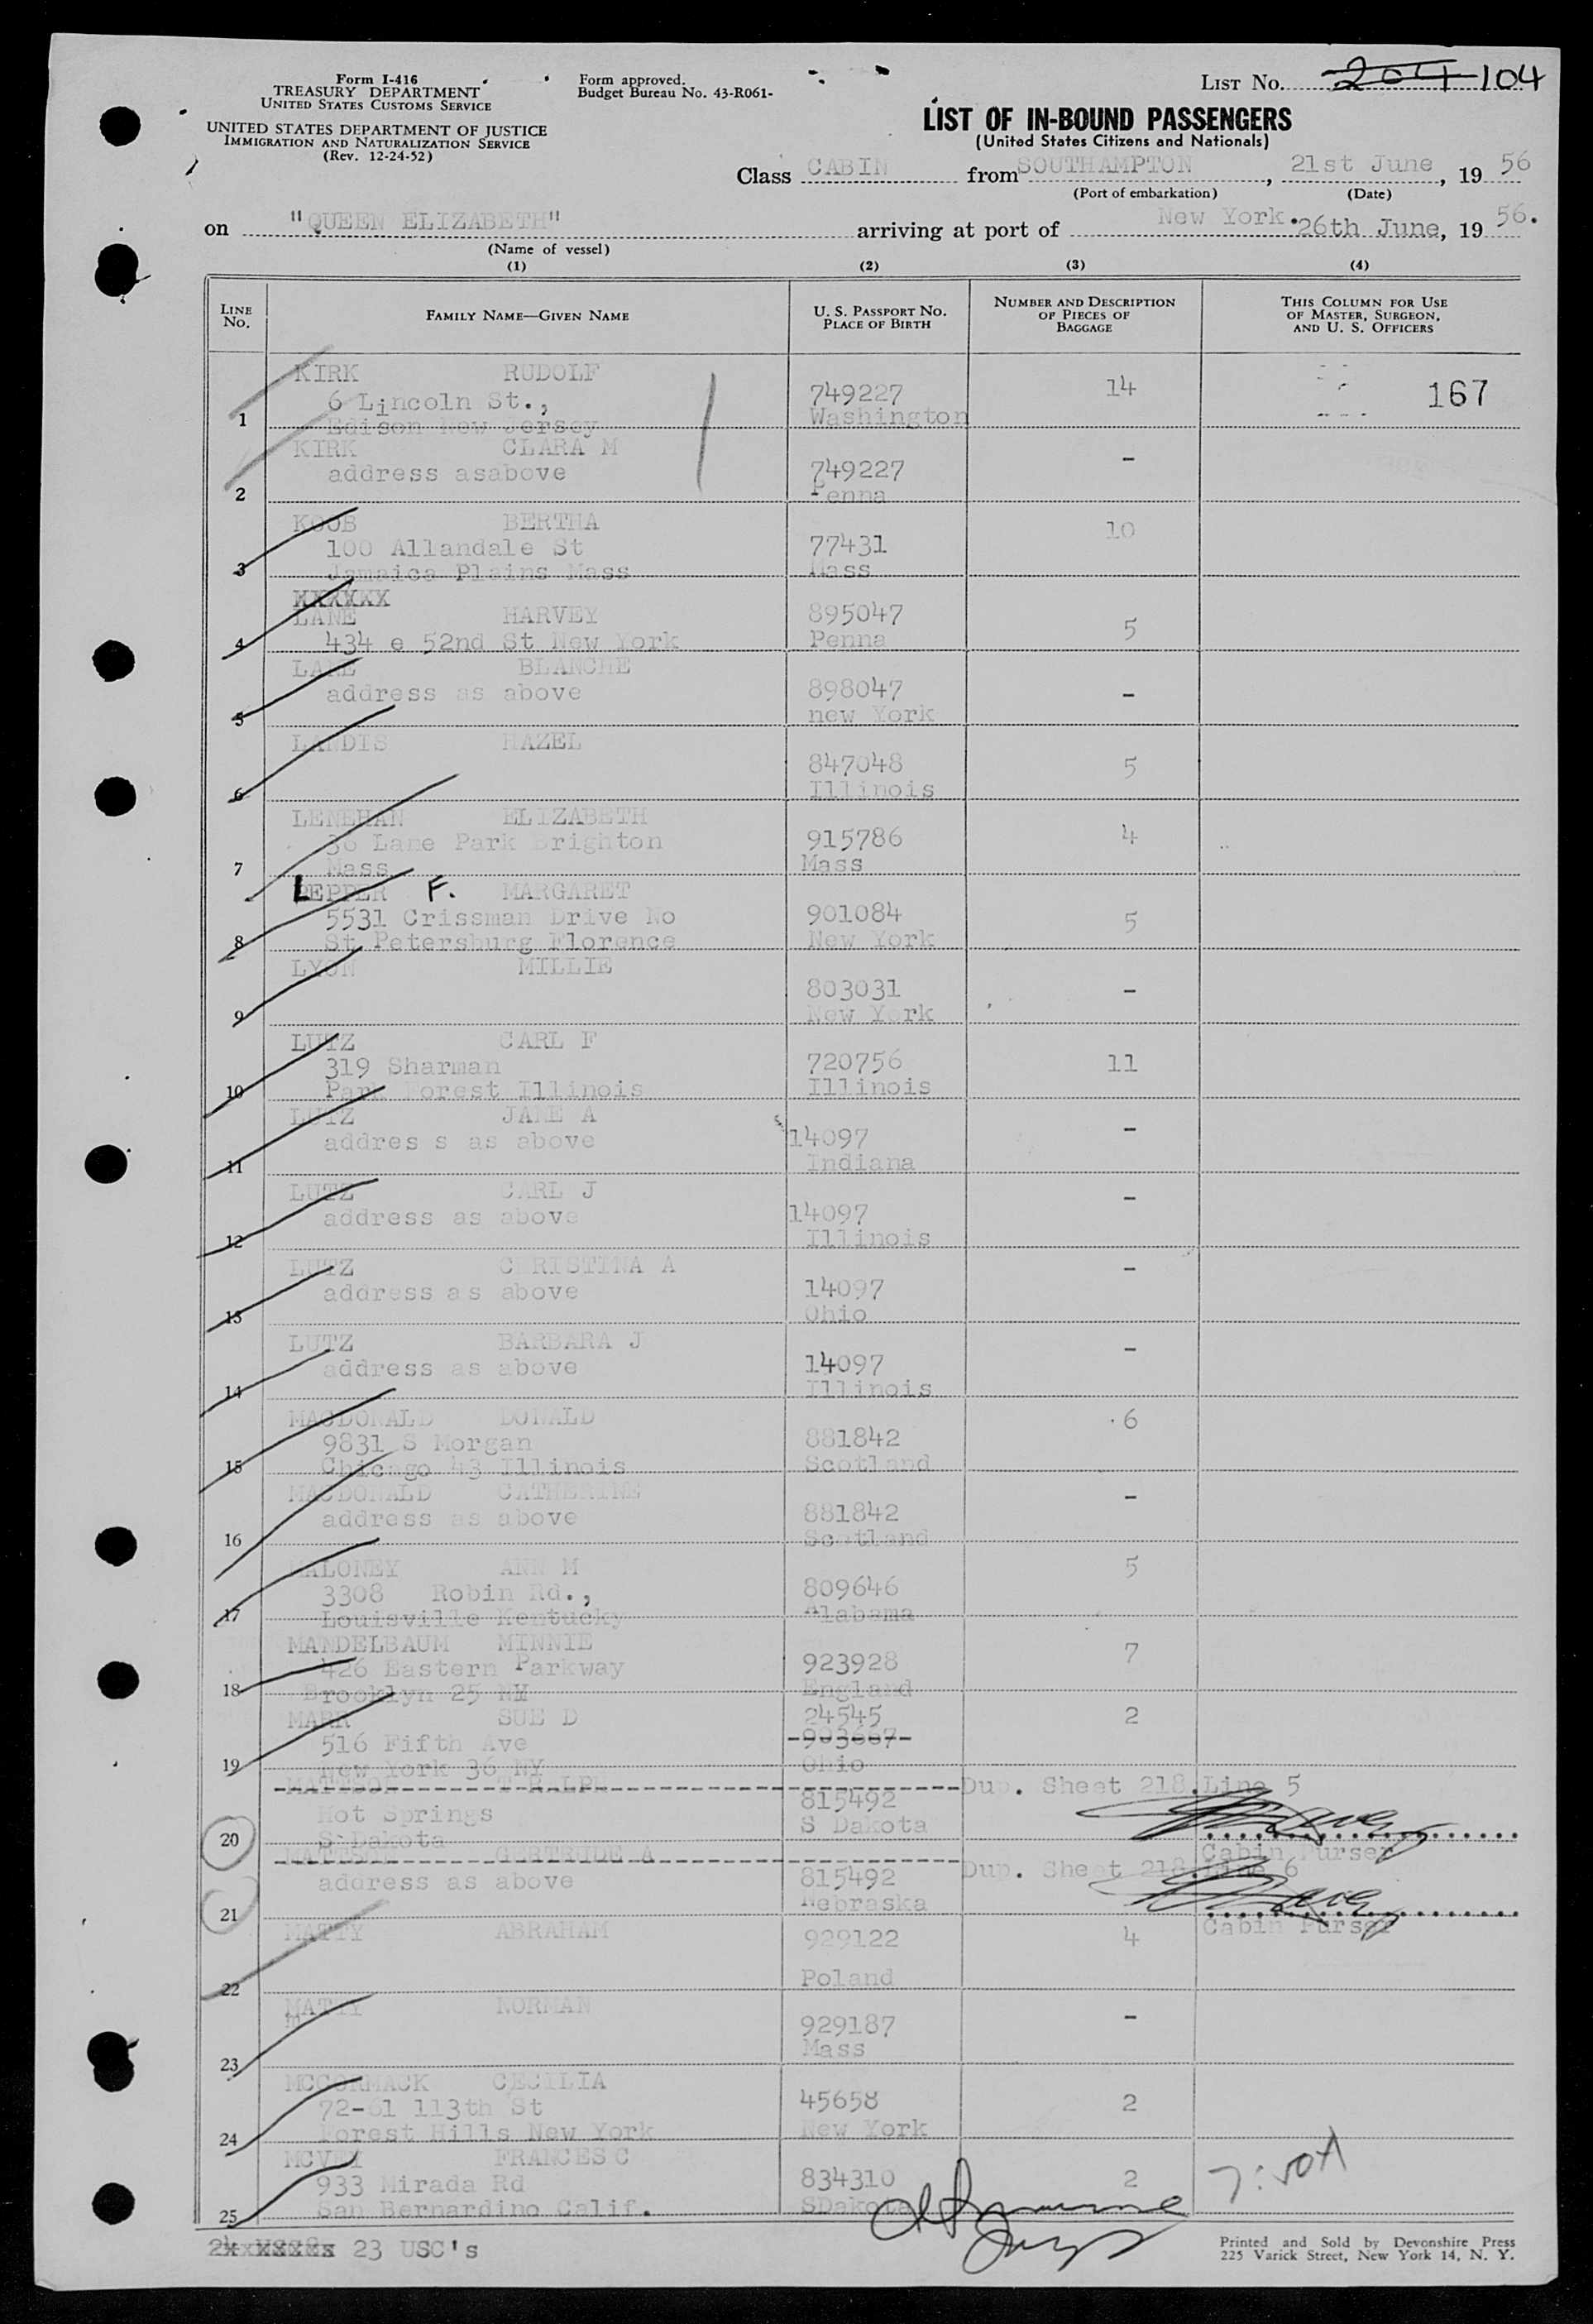 Form I-416
TREASURY DEPARTMENT
UNITED STATES CUSTOMS SERVICE
UNITED STATES DEPARTMENT OF JUSTICE
IMMIGRATION AND NATURALIZATION SERVICE
(Rev. 12-24-52)
Form approved.
Budget Bureau No. 43-R061-
LIST NO. 204 104
LIST OF IN-BOUND PASSENGERS
(United States Citizens and Nationals)
Class CABIN from SOUTHAMPTON, 21st June, 19 56
(Port of embarkation) (Date)
on "QUEEN ELIZABETH" arriving at port of New York. 26th June, 19 56.
(Name of vessel)
(1) (2) (3) (4)
LINE NO. FAMILY NAME—GIVEN NAME U. S. PASSPORT NO. PLACE OF BIRTH NUMBER AND DESCRIPTION OF PIECES OF BAGGAGE THIS COLUMN FOR USE OF MASTER, SURGEON, AND U. S. OFFICERS
KIRK RUDOLF
6 Lincoln St., 749227 14 167
1 Edison New Jersey Washington
KIRK CLARA M
address asabove 749227 -
2 Penna
KOOB BERTHA 10
100 Allandale St 77431
3 Jamaica Plains Mass Mass
XXXXXX
LANE HARVEY 895047
4 434 e 52nd St New York Penna 5
LANE BLANCHE
address as above 898047 -
5 new York
LANDIS HAZEL
847048 5
6 Illinois
LENEHAN ELIZABETH
30 Lane Park Brighton 915786 4
7 Mass Mass
LEPPER F. MARGARET
5531 Crissman Drive No 901084 5
8 St Petersburg Florence New York
LYON MILLIE
803031 -
9 New York
LUTZ CARL F
319 Sharman 720756 11
10 Park Forest Illinois Illinois
LUTZ JANE A
addres s as above 14097 -
11 Indiana
LUTZ CARL J
address as above 14097 -
12 Illinois
LUTZ CHRISTINA A
address as above 14097 -
13 Ohio
LUTZ BARBARA J
address as above 14097 -
14 Illinois
MACDONALD DONALD 6
9831 S Morgan 881842
15 Chicago 43 Illinois Scotland
MACDONALD CATHERINE
address as above 881842 -
16 Scotland
MALONEY ANN M 5
3308 Robin Rd., 809646
17 Louisville Kentucky Alabama
MANDELBAUM MINNIE 7
426 Eastern Parkway 923928
18 Brooklyn 25 NY England
MARK SUE D 24545 2
516 Fifth Ave 903667
19 New York 36 NY Ohio
MATTSON T RALPH Dup. Sheet 218. Line 5
Hot Springs 815492
20 S Dakota S Dakota
Cabin Purser
MATTSON GERTRUDE A Dup. Sheet 218. Line 6
address as above 815492
21 Nebraska
Cabin Purser
MATTY ABRAHAM 929122 4
22 Poland
MATTY NORMAN
929187 -
23 Mass
MCCORMACK CECILIA
72-61 113th St 45658 2
24 Forest Hills New York New York
MCVEY FRANCES C
933 Mirada Rd 834310 2
25 San Bernardino Calif. SDakota
23 USC's
Printed and Sold by Devonshire Press
225 Varick Street, New York 14, N. Y.